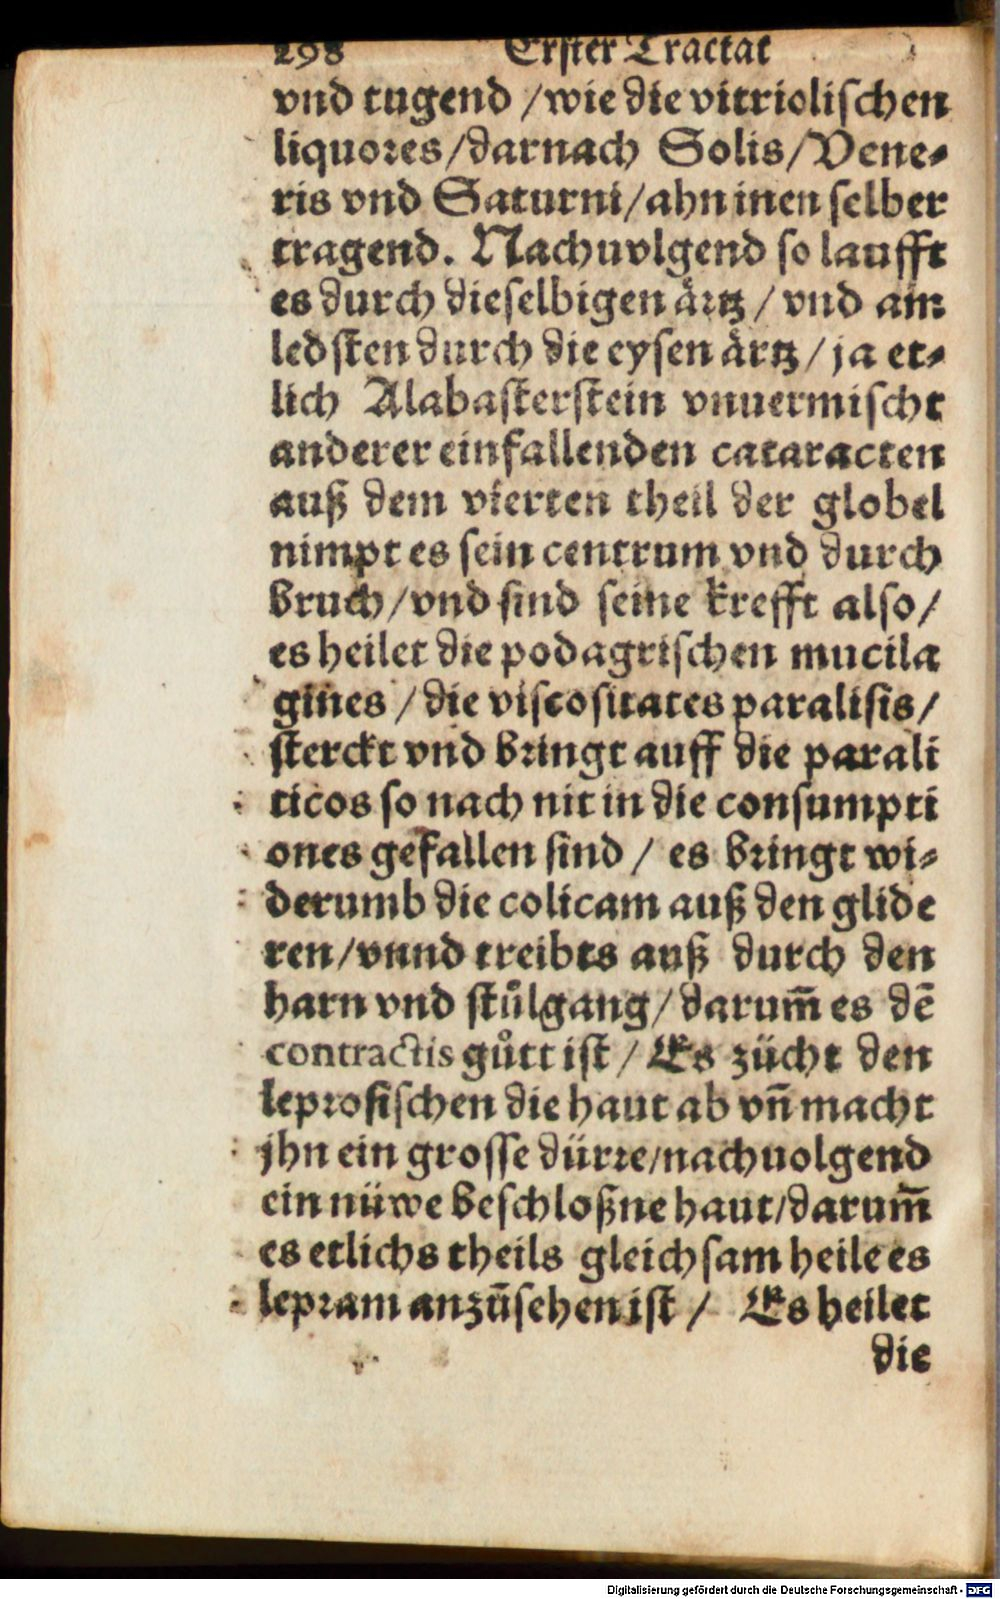 298 Erster Tractat
vnd tugend / wie die vitriolischen
liquores / darnach Solis / Vene⸗
ris vnd Saturni / ahn inen selber
tragend. Nachuolgend so laufft
es durch dieselbigen ärtz / vnd am
ledsten durch die eysen ärtz / ja et⸗
lich Alabasterstein vnuermischt
anderer einfallenden cataracten
auß dem vierten theil der globel
nimpt es sein centrum vnd durch
bruch / vnd sind seine krefft also /
es heilet die podagrischen mucila
gines / die viscositates paralisis /
sterckt vnd bringt auff die parali
ticos so nach nit in die consumpti
ones gefallen sind / es bringt wi⸗
derumb die colicam auß den glide
ren / vnnd treibts auß durch den
harn vnd stůlgang / darum̃ es dẽ
contractis gůtt ist / Es zücht den
leprosischen die haut ab vñ macht
jhn ein grosse dürre / nachuolgend
ein nüwe beschloßne haut / darum̃
es etlichs theils gleichsam heile es
lepram anzůsehen ist / Es heilet
die
Digitalisierung gefördert durch die Deutsche Forschungsgemeinschaft - DFG